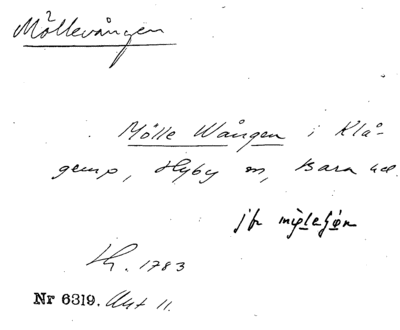 Möllevången
Mölle Wången i Klå-
gerup, Hyby sn, Bara hd.
jfr
Lh. 1783
Nr 6319. Akt 11.